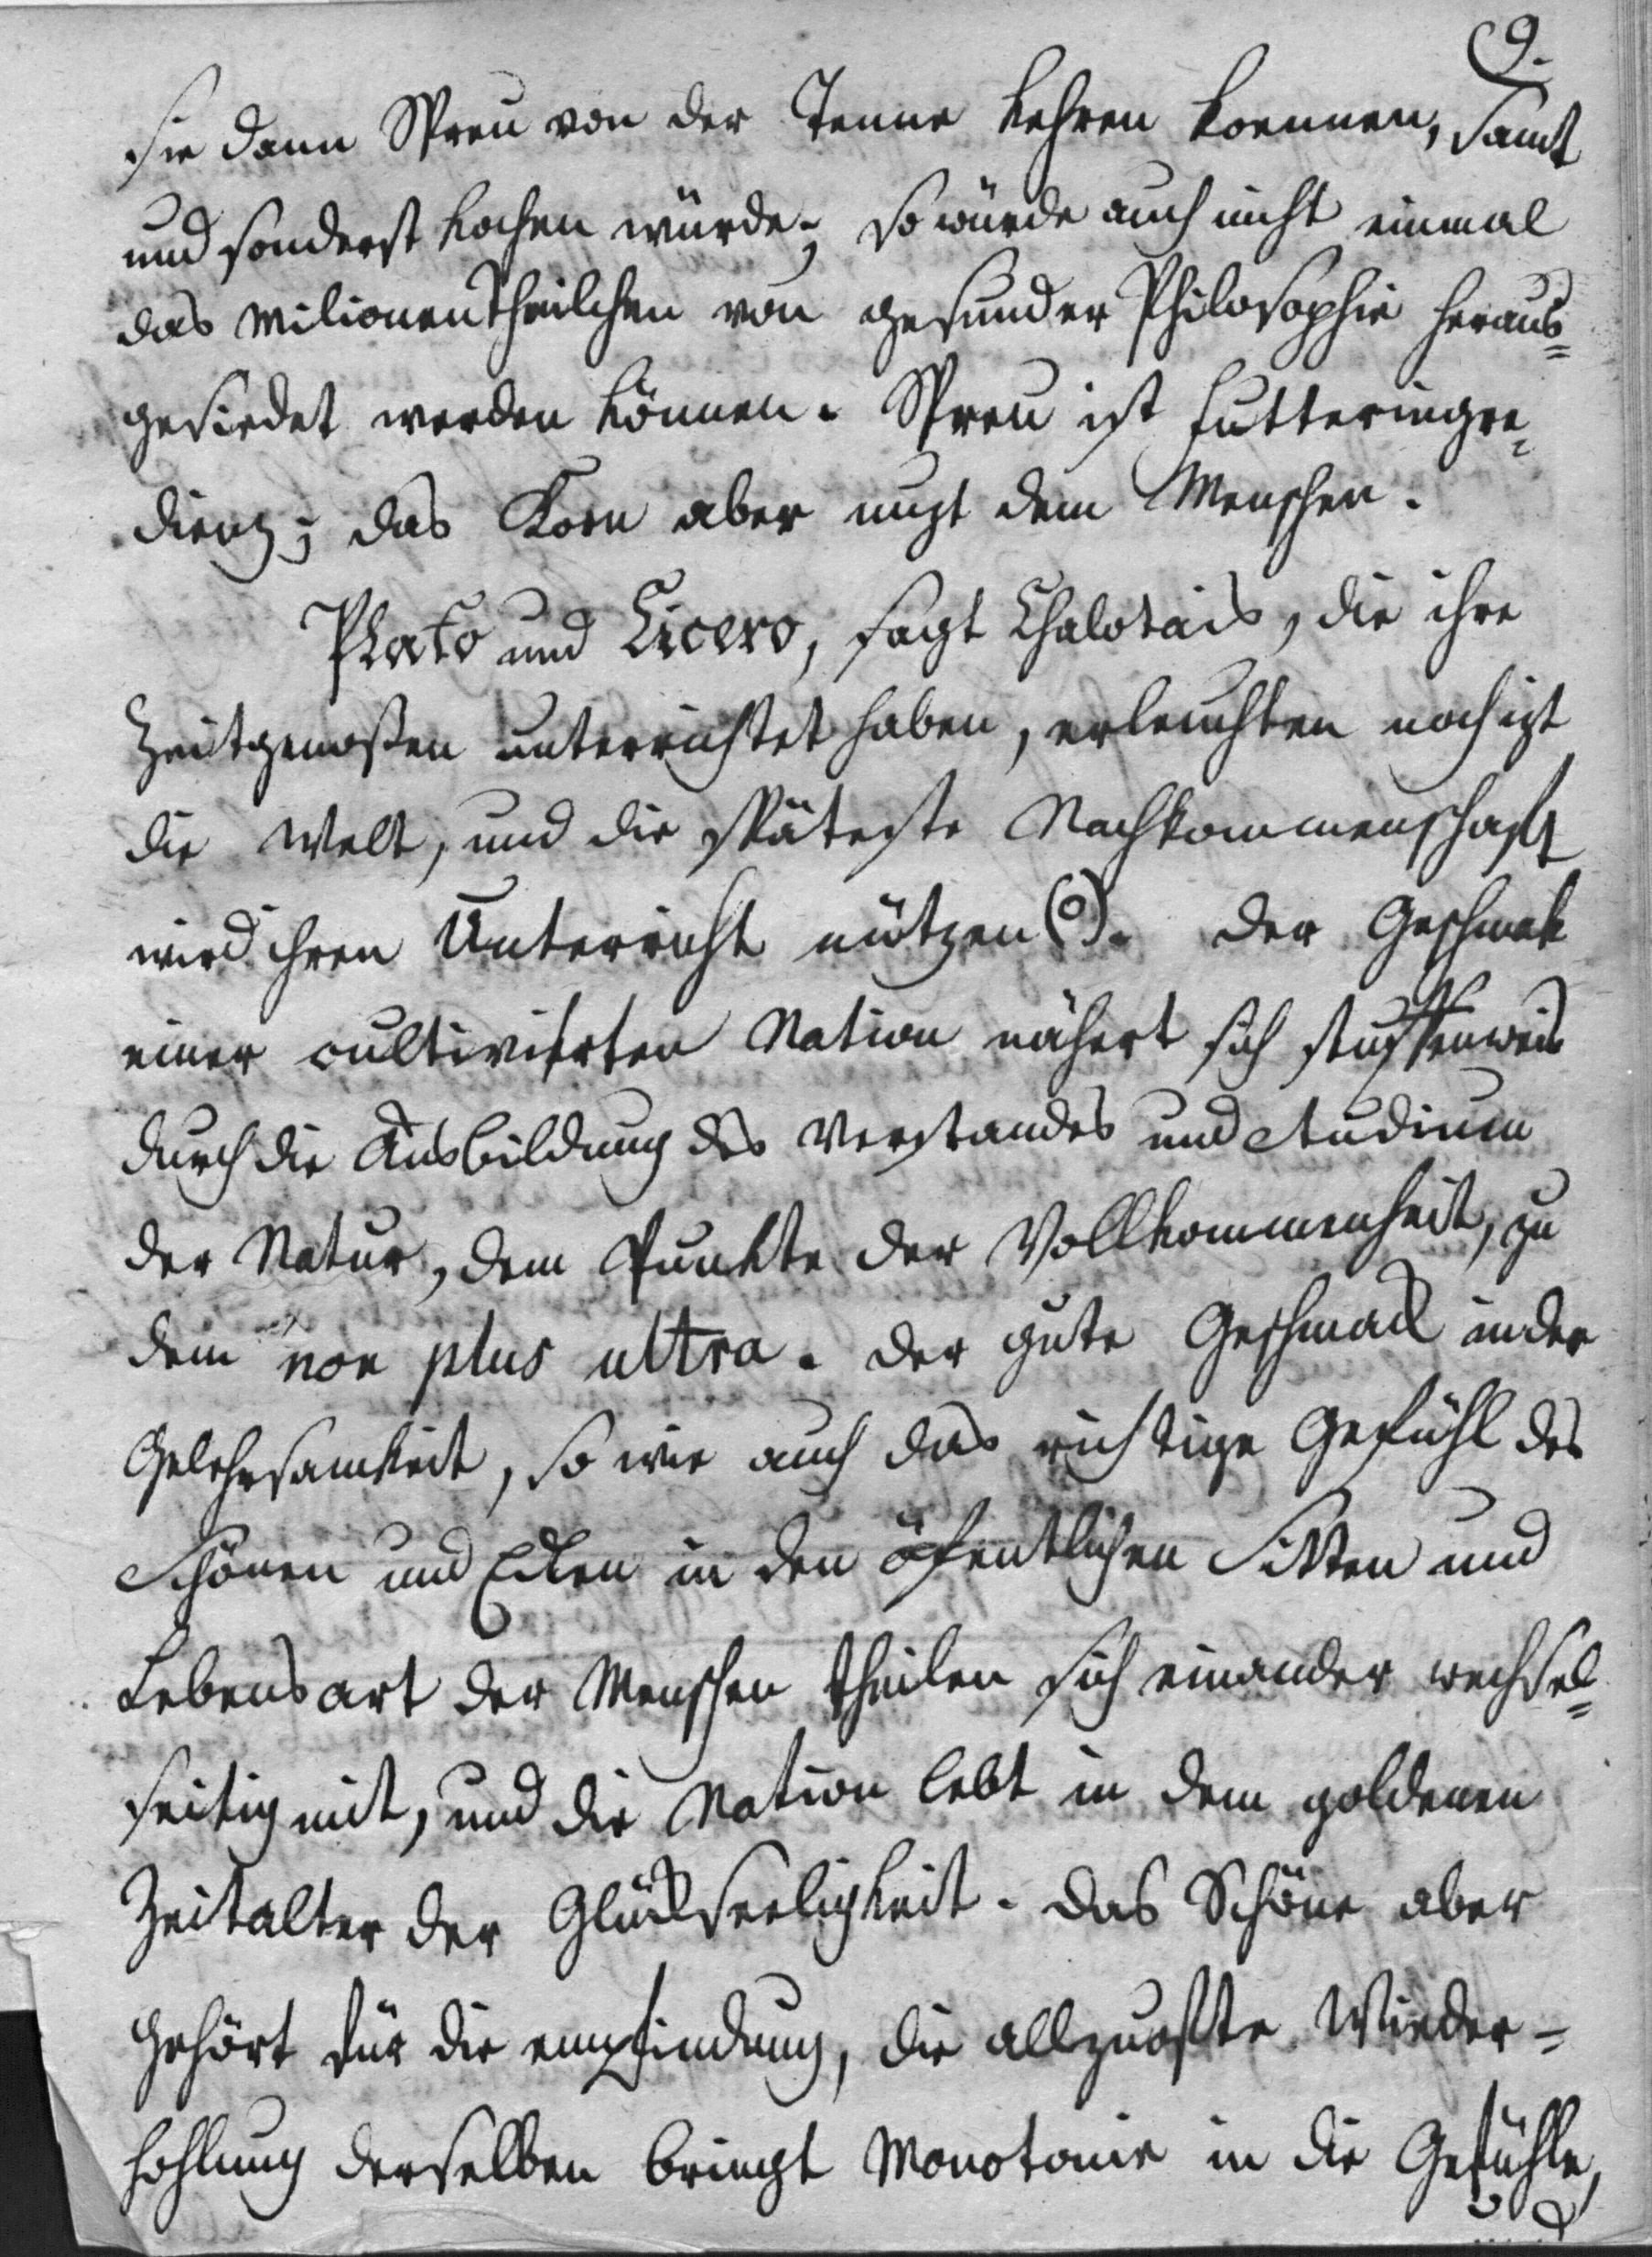 9.
sie dann Spreu von der Tenne kehren koennen, samt
und sonderst kochen würde; so würde auch nicht einmal
das milionen Theilchen von gesunder Philosophie heraus=
gesiedet werden können. Spreu ist Futteringre=
dienz; das Korn aber nuzt dem Menschen.
Plato und Cicero, sagt Chalotais, die ihre
Zeitgenoßen unterrichtet haben, erleuchten noch izt
die Welt, und die späteste Nachkommenschaft
wird ihren Unterricht nützen (o). Der Geschmak
einer cultivirten Nation nähert sich stuffenweis
durch die Ausbildung des Verstandes und Studium
der Natur, dem Punkte der Vollkommenheit, zu
dem non plus ultra. Der gute Geschmack in der
Gelehrsamkeit, so wie auch das richtige Gefühl des
Schönen und Edlen in den öfentlichen Sitten und
Lebensart der Menschen theilen sich einander wechsel=
seitig mit, und die Nation lebt in dem goldenen
Zeitalter der Glückseeligkeit. Das Schöne aber
gehört für die empfindung, die allzuofte Wieder=
hohlung derselben bringt Monotonie in die Gefühle,